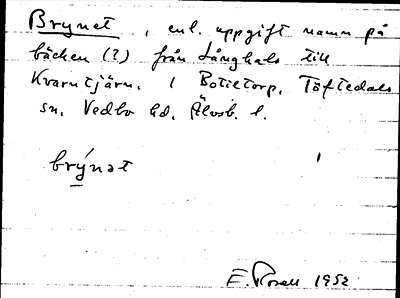 Brynet, enl. uppgift namn på
bäcken (?) från Långhals till
Kvarntjärn. 1 Botiltorp, Töftedals
sn. Vedbo hd. Älvsb. l.
brýnət
E. Rosell 1952